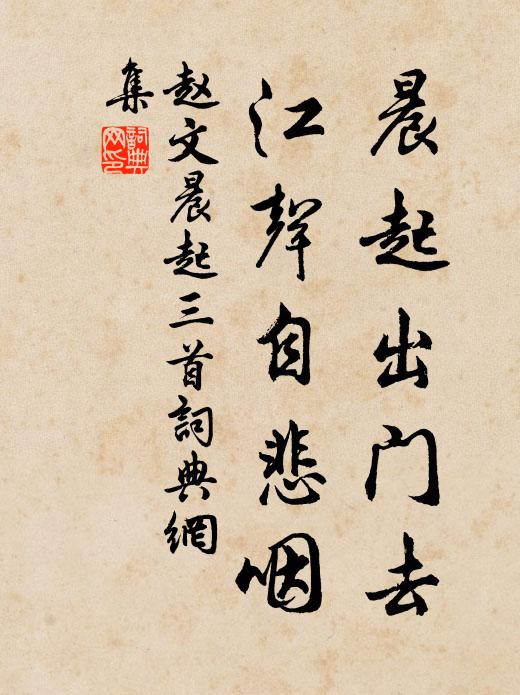 晨起出门去
江聲自悲咽
赵文晨起三首詞典網
集
詞典网印